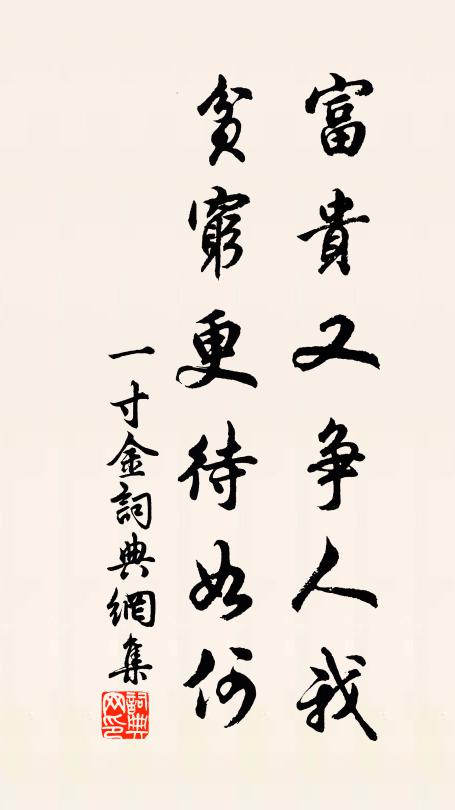 富貴又争人我
貧窮更待如何
一寸金詞典網集
詞典
网印